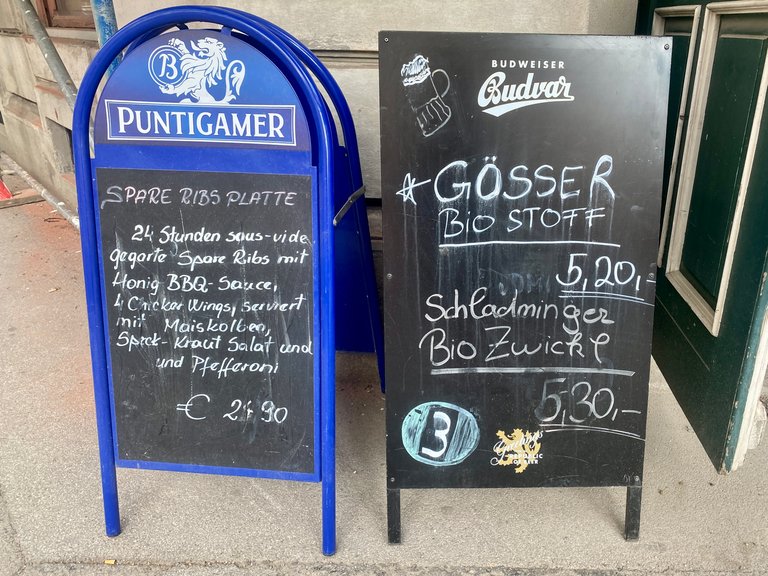 B
PUNTIGAMER
SPARE RIBS PLATTE
24 Stunden sous-vide
gegarte Spare Ribs mit
Honig BBQ-Sauce,
4 Chicker Wings, serviert
mit Maiskolben,
Speck-Kraut Salat und
und Pfefferoni
€ 24,90
BUDWEISER
Budvar
GÖSSER
Bio STOFF
5,20,-
Schladminger
Bio Zwickl
5,30,-
3
REPUBLIC
OF BEER